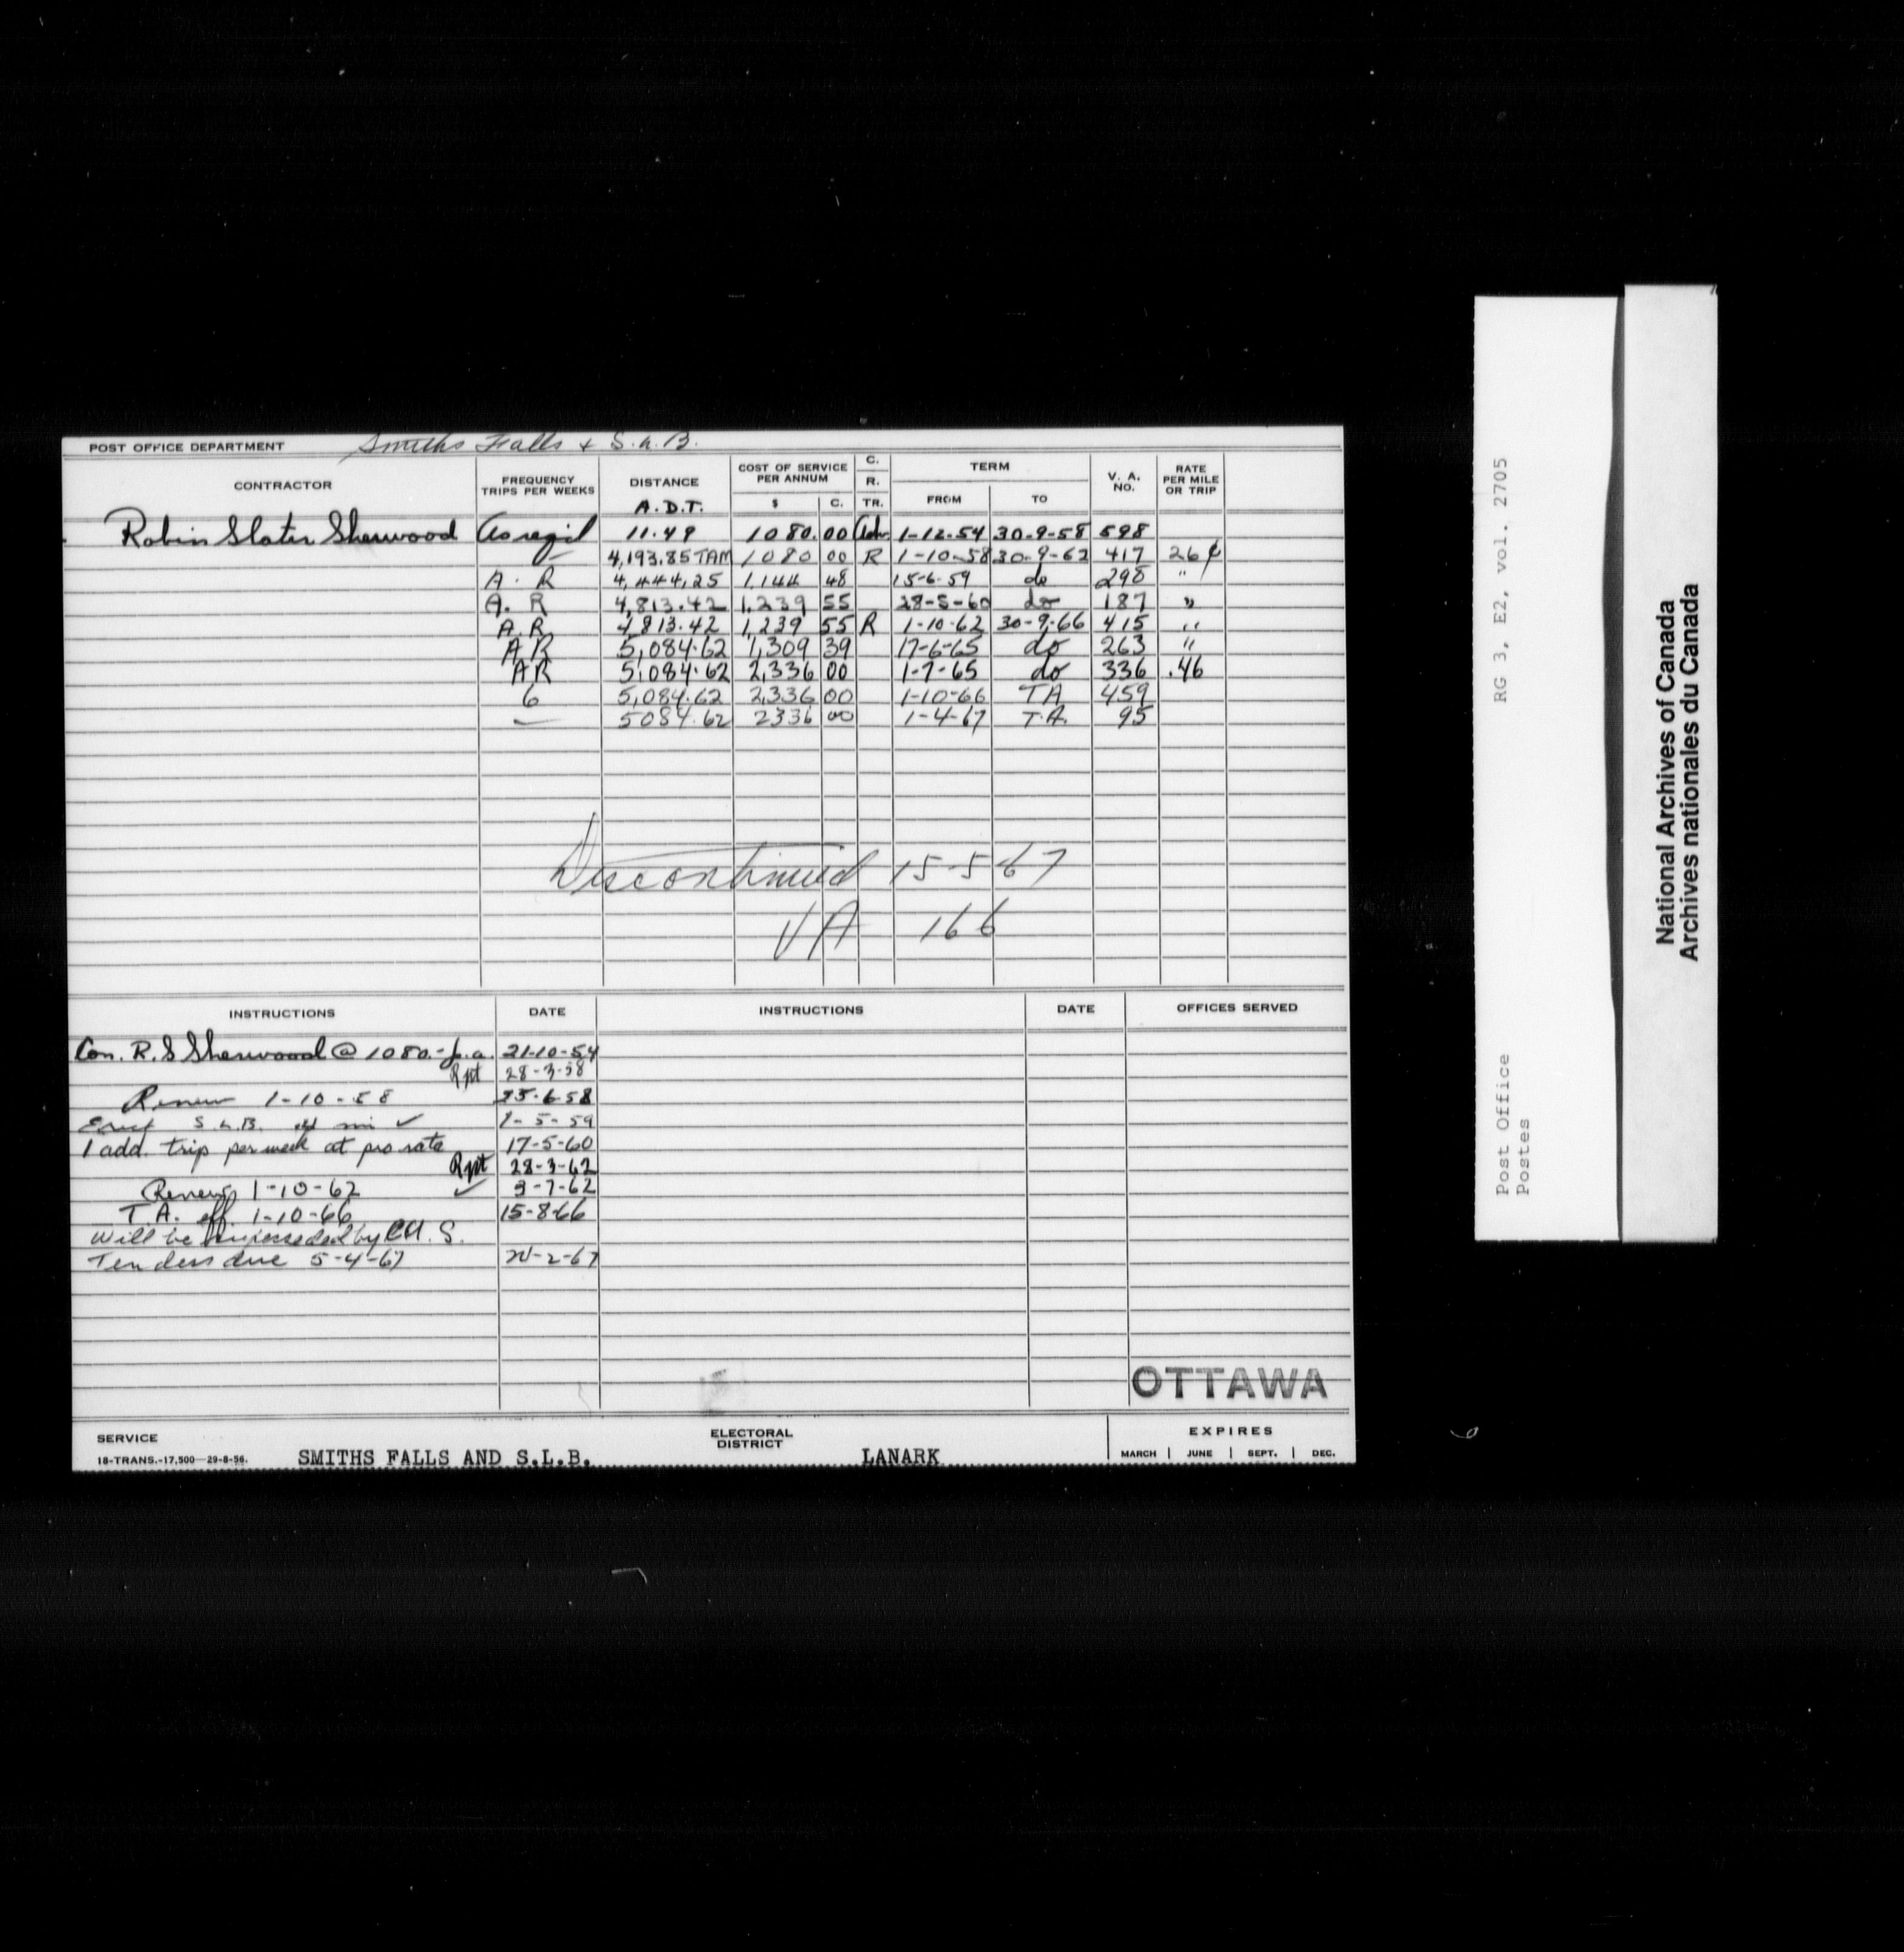 POST OFFICE DEPARTMENT Smiths Falls & S.L.B.
CONTRACTOR FREQUENCY TRIPS PER WEEKS DISTANCE A.D.T. COST OF SERVICE PER ANNUM $ C. C. R. TR. TERM FROM TO V. A. NO. RATE PER MILE OR TRIP
Robin Slater Sherwood As req'd 11.49 1080.00 1-12-54 30-9-58 598
4,193.85 TAM 1080 00 R 1-10-58 30-9-62 417 26¢
A. R 4,444.25 1,144 48 15-6-59 do 298 "
A. R 4,813.42 1,239 55 28-5-60 do 187 "
A.R 4,813.42 1,239 55 R 1-10-62 30-9-66 415 "
AR 5,084.62 1,309 39 17-6-65 do 263 "
AR 5,084.62 2,336 00 1-7-65 do 336 .46
6 5,084.62 2,336 00 1-10-66 TA 459
— 5084.62 2336 00 1-4-67 T.A. 95
Discontinued 15-5-67
VA 166
INSTRUCTIONS DATE INSTRUCTIONS DATE OFFICES SERVED
Con. R. S Sherwood @ 1080.- p.a. 21-10-54
Rpt 28-3-58
Renew 1-10-58 25-6-58
S.L.B. ✓ 1-5-59
1 add. trip per week at pro rate 17-5-60
Rpt 28-3-62
Renew 1-10-62 ✓ 3-7-62
T.A. eff. 1-10-66 15-8-66
Will be superseded by C.U.S.
Tenders due 5-4-67 -2-67
OTTAWA
SERVICE
18-TRANS.-17,500—29-8-56. SMITHS FALLS AND S.L.B.
ELECTORAL DISTRICT LANARK
EXPIRES
MARCH | JUNE | SEPT. | DEC.
RG 3, E2, vol. 2705
Post Office
Postes
National Archives of Canada
Archives nationales du Canada